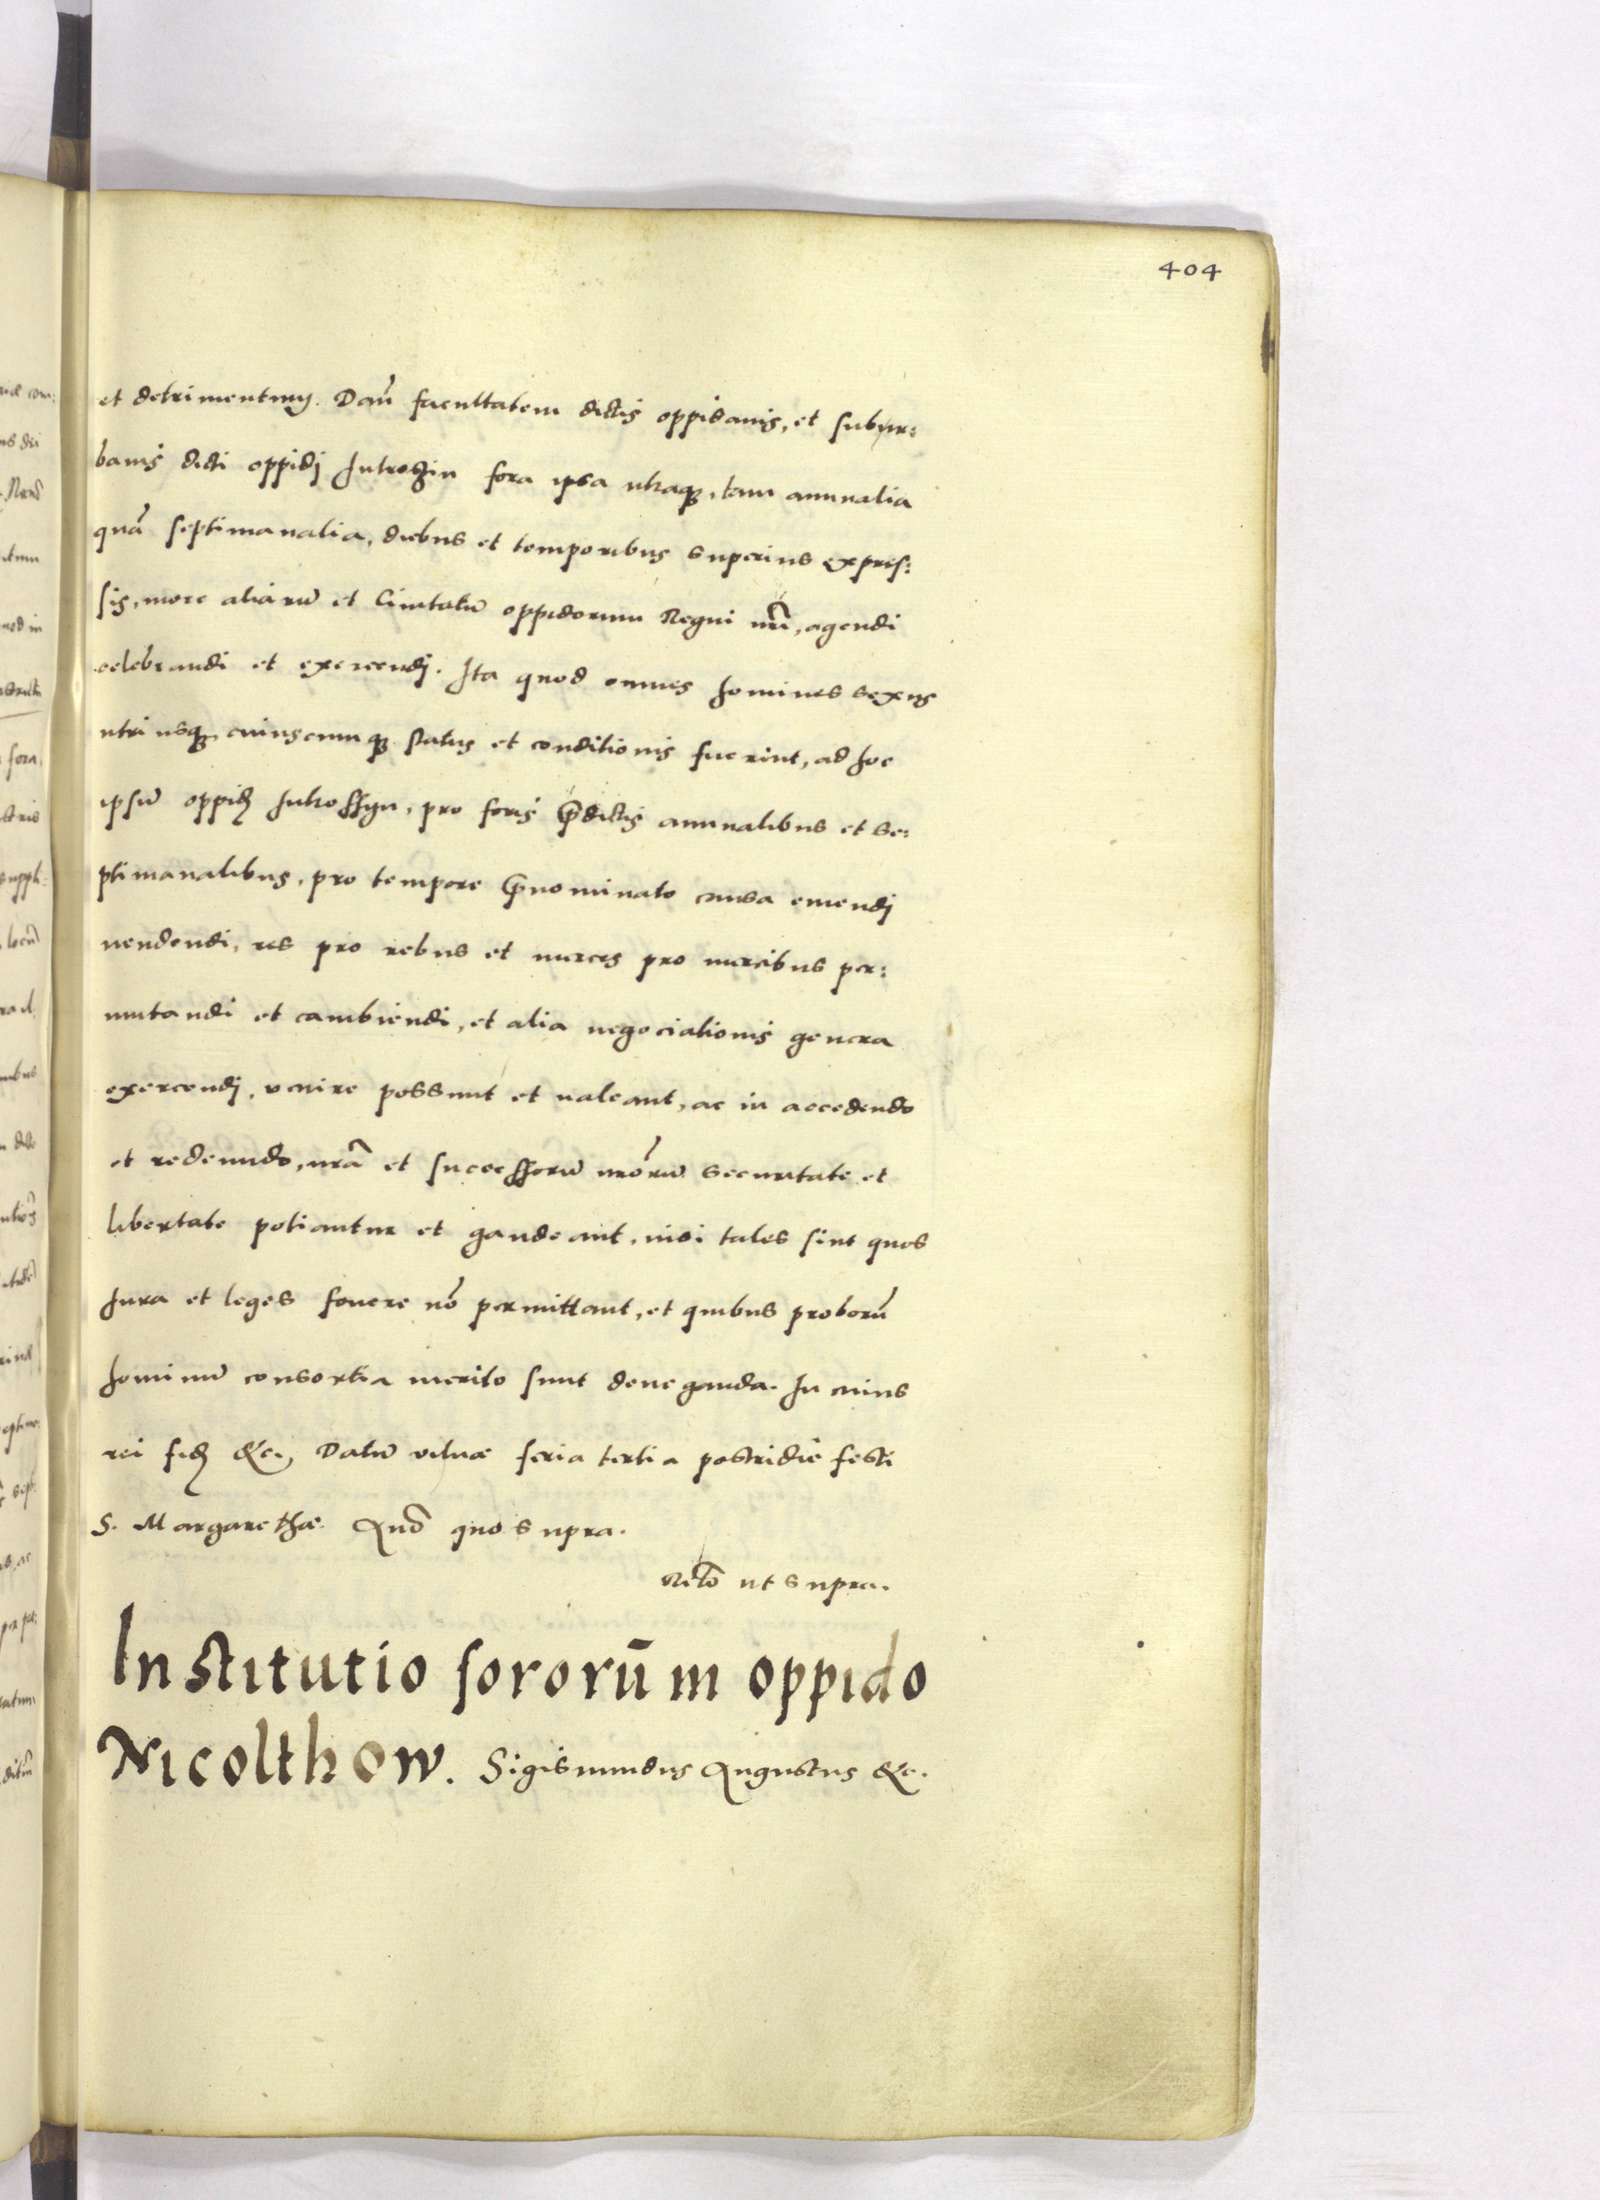 404
et detrimentum. Dam̃ facultatem dictis oppidanis, et subur:
banis dicti oppidj Jutroszin fora ipsa utraq;, tam annualia
quã septimanalia, diebus et temporibus superius expres:
sis, more aliarũ et Civitatũ oppidorum Regni nr̃i, agendi
celebrandi et exercendj. Ita quod omnes homines sexus
utriusq; cuiuscumq; status et conditionis fuerint, ad hoc
ipsũ oppid. Jutrossyn, pro foris p̃dictis annualibus et se:
ptimanalibus, pro tempore p̃nominato causa emendj
uendendi, res pro rebus et merces pro mercibus per:
mutandi et cambiendi, et alia negociationis genera
exercendj, venire possunt et ualeant, ac in accedendo
et redeundo, nr̃a et successorũ nr̃orũ securitate et
libertate potiantur et gaudeant, nisi tales sint quos
Jura et leges fovere nõ permittant, et quibus proborũ
hominũ consortia merito sunt deneganda. In cuius
rei fid. &c. Datũ vilnæ feria tertia postridie festi
S. Margarethæ. Añõ quo supra.
Relõ ut supra.
Institutio sororũ in oppido
Nicolthow. Sigismundus Augustus &c.